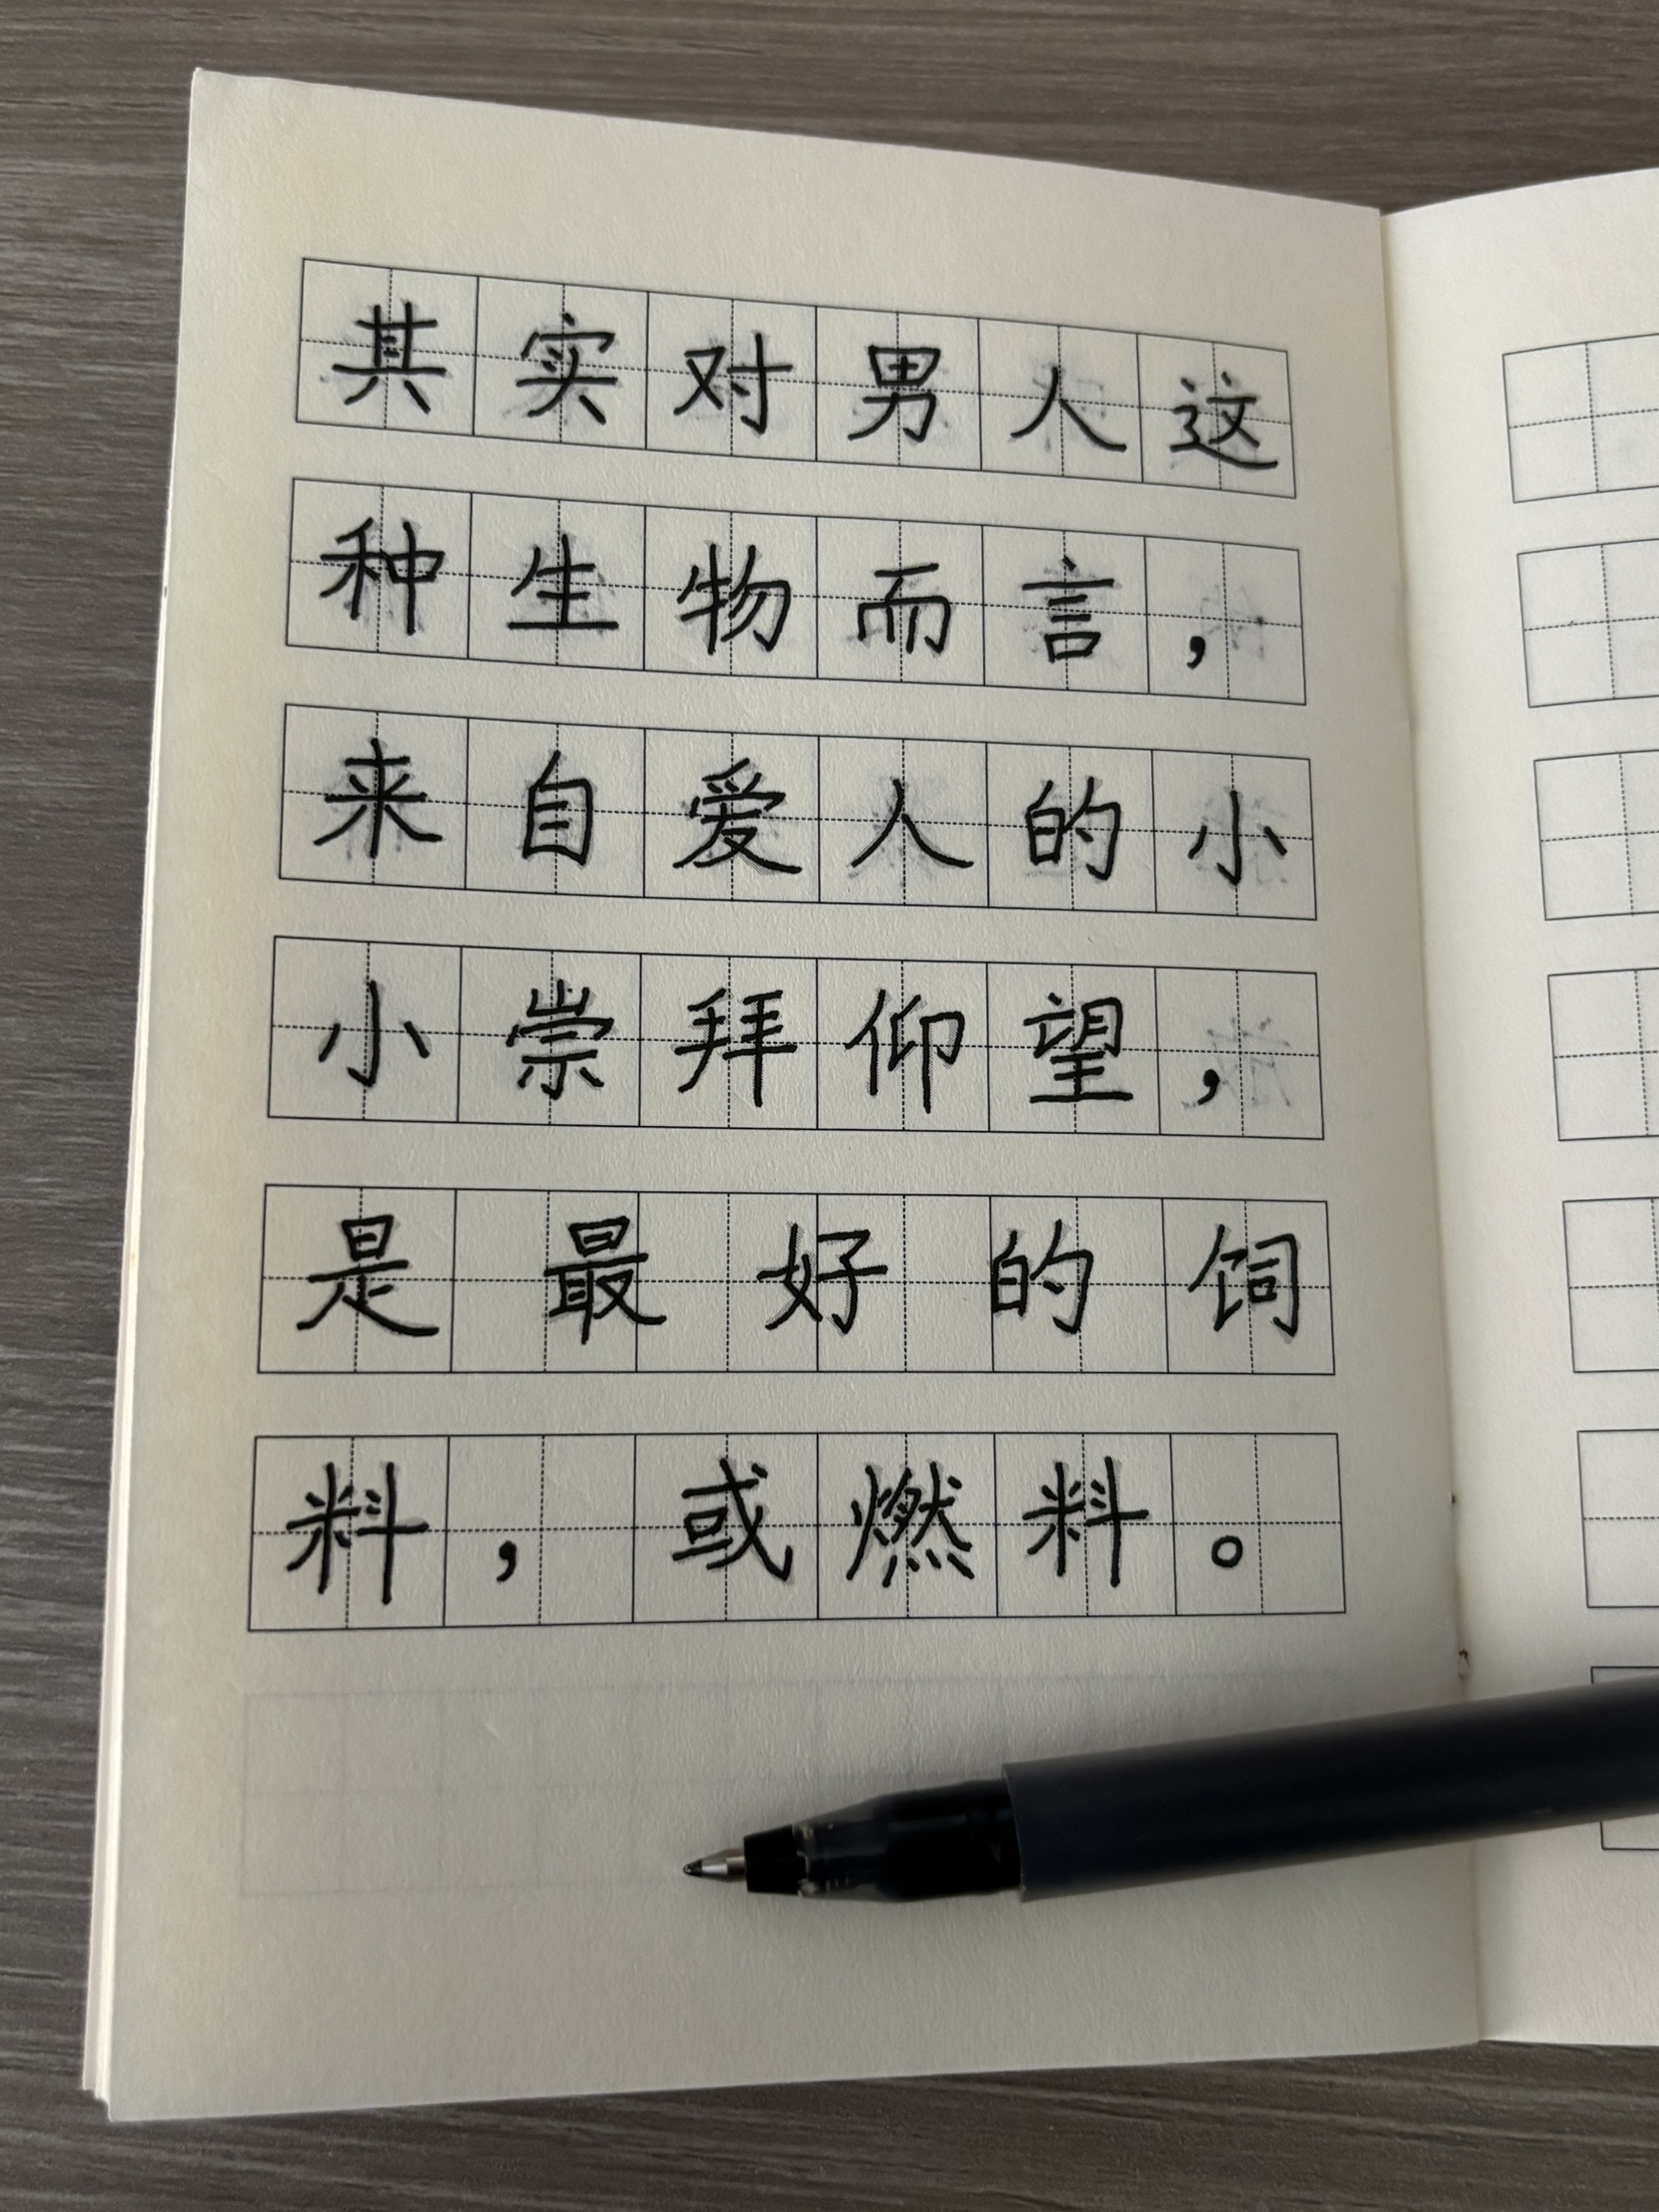 其实对男人这
种生物而言，
来自爱人的小
小崇拜仰望，
是最好的饲
料，或燃料。